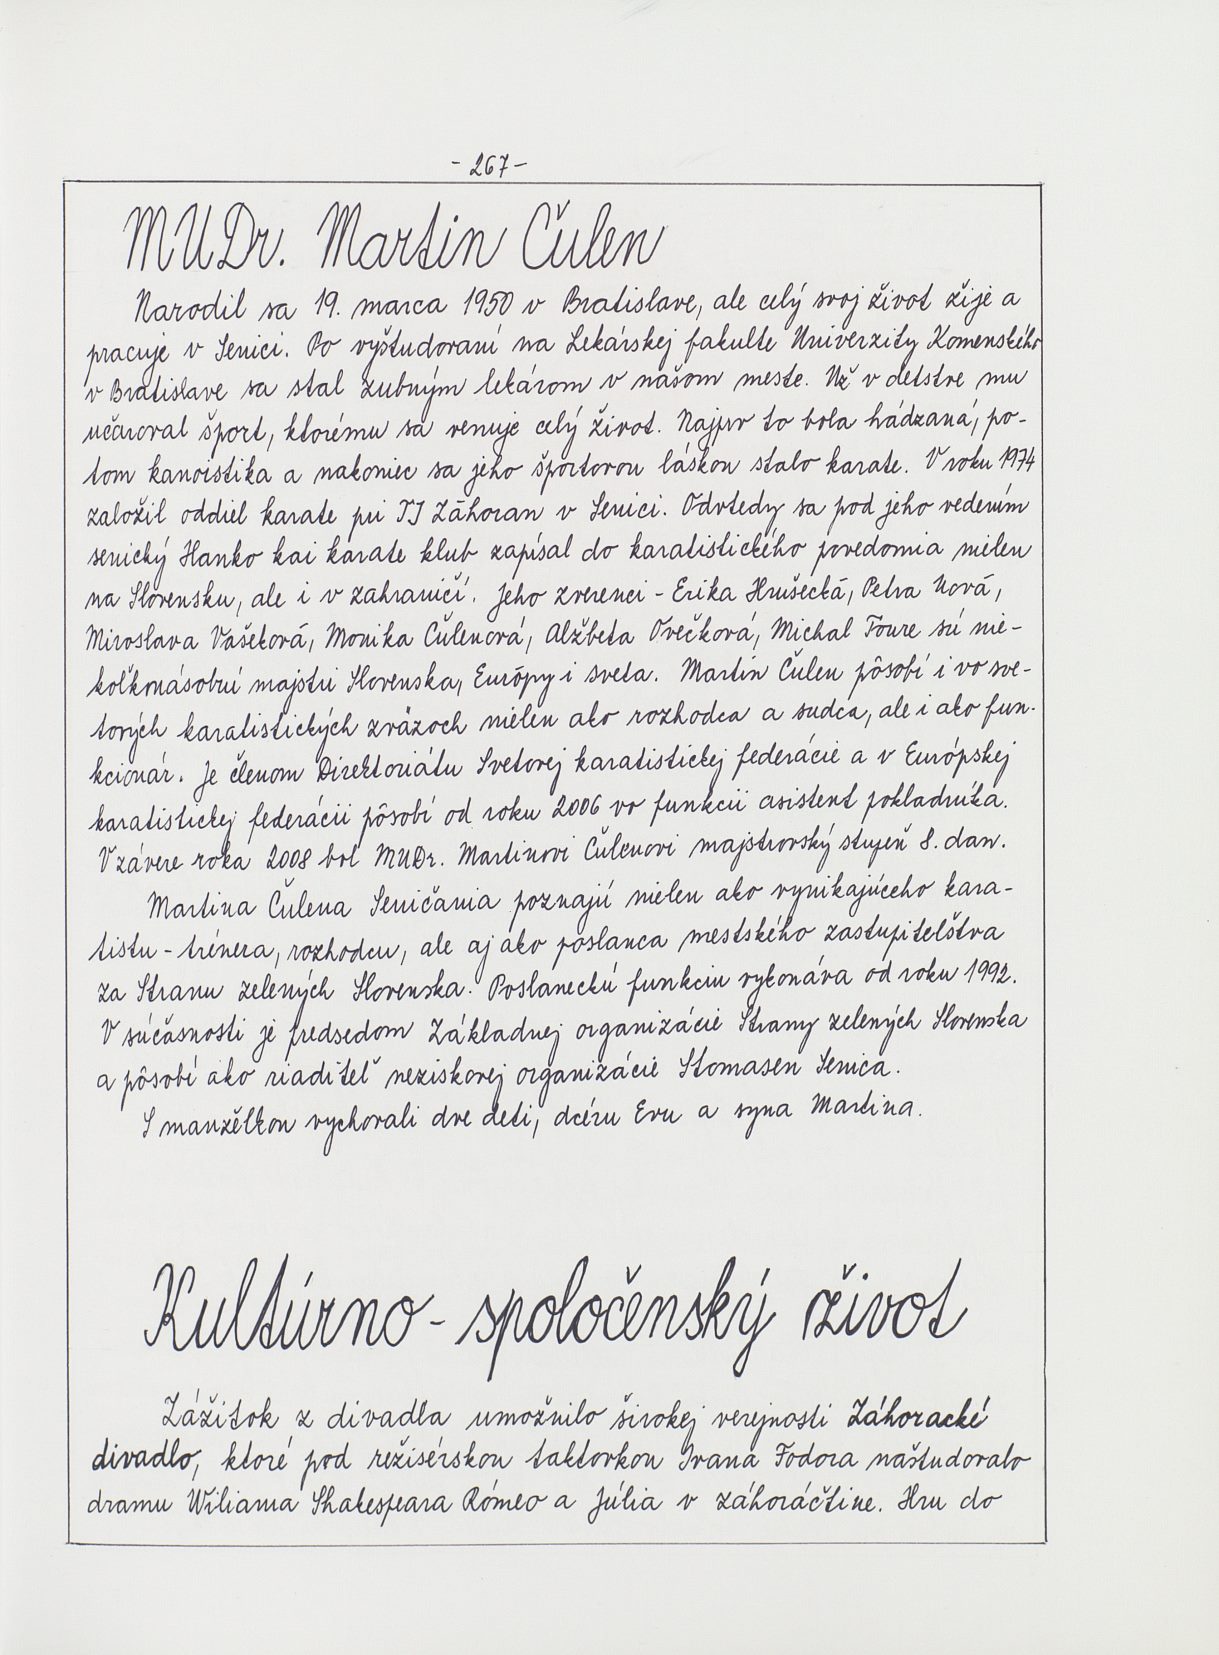 - 267 -
MUDr. Martin Čulen
Narodil sa 19. marca 1950 v Bratislave, ale celý svoj život žije a
pracuje v Senici. Po vyštudovaní na Lekárskej fakulte Univerzity Komenského
v Bratislave sa stal zubným lekárom v našom meste. Už v detstve mu
učaroval šport, ktorému sa venuje celý život. Najprv to bola hádzaná, po-
tom kanoistika a nakoniec sa jeho športovou láskou stalo karate. V roku 1974
založil oddiel karate pri TJ Záhoran v Senici. Odvtedy sa pod jeho vedením
senický Hanko kai karate klub zapísal do karatistického povedomia nielen
na Slovensku, ale i v zahraničí. Jeho zverenci - Erika Hrušecká, Petra Nová,
Miroslava Vašeková, Monika Čulenová, Alžbeta Ovečková, Michal Foure sú nie-
koľkonásobní majstri Slovenska, Európy i sveta. Martin Čulen pôsobí i vo sve-
tových karatistických zväzoch nielen ako rozhodca a sudca, ale i ako fun-
kcionár. Je členom Direktoriátu Svetovej karatistickej federácie a v Európskej
karatistickej federácii pôsobí od roku 2006 vo funkcii asistent pokladníka.
V závere roka 2008 bol MUDr. Martinovi Čulenovi majstrovský stupeň 8. dan.
Martina Čulena Seničania poznajú nielen ako vynikajúceho kara-
tistu - trénera, rozhodcu, ale aj ako poslanca mestského zastupiteľstva
za Stranu zelených Slovenska. Poslaneckú funkciu vykonáva od roku 1992.
V súčasnosti je predsedom Základnej organizácie Strany zelených Slovenska
a pôsobí ako riaditeľ neziskovej organizácie Stomasen Senica.
S manželkou vychovali dve deti, dcéru Evu a syna Martina.
Kultúrno - spoločenský život
Zážitok z divadla umožnilo širokej verejnosti Záhoracké
divadlo, ktoré pod režisérskou taktovkou Ivana Fodora naštudovalo
dramu Wiliama Shakespeara Rómeo a Júlia v záhoráčtine. Hru do